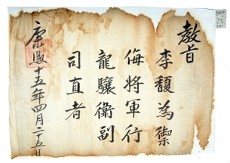 敎旨
李馥為禦
侮將軍行
龍驤衛副
司直者
康熙十五年四月二十五日